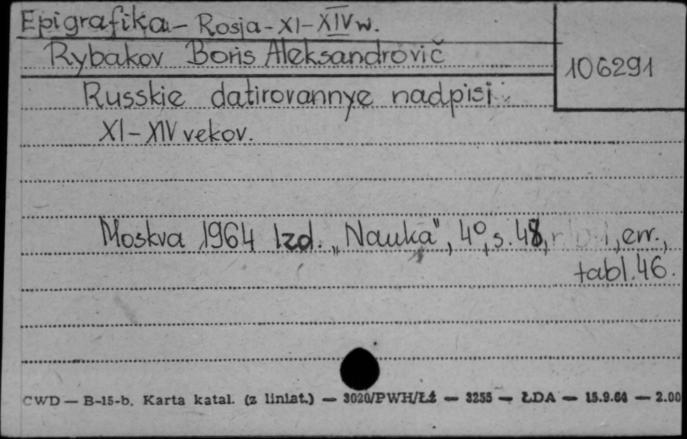 Epigrafika - Rosja - XI - XIV w.
Rybakov Boris Aleksandrovič
106291
Russkie datirovannye nadpisi
XI - XIV vekov.
Moskva 1964 Izd. „Nauka", 4°, s. 48, err.,
tabl. 46.
CWD — B-15-b. Karta katal. (z liniat.) — 3020/PWH/Łź — 3255 — ŁDA — 15.9.64 — 2.00